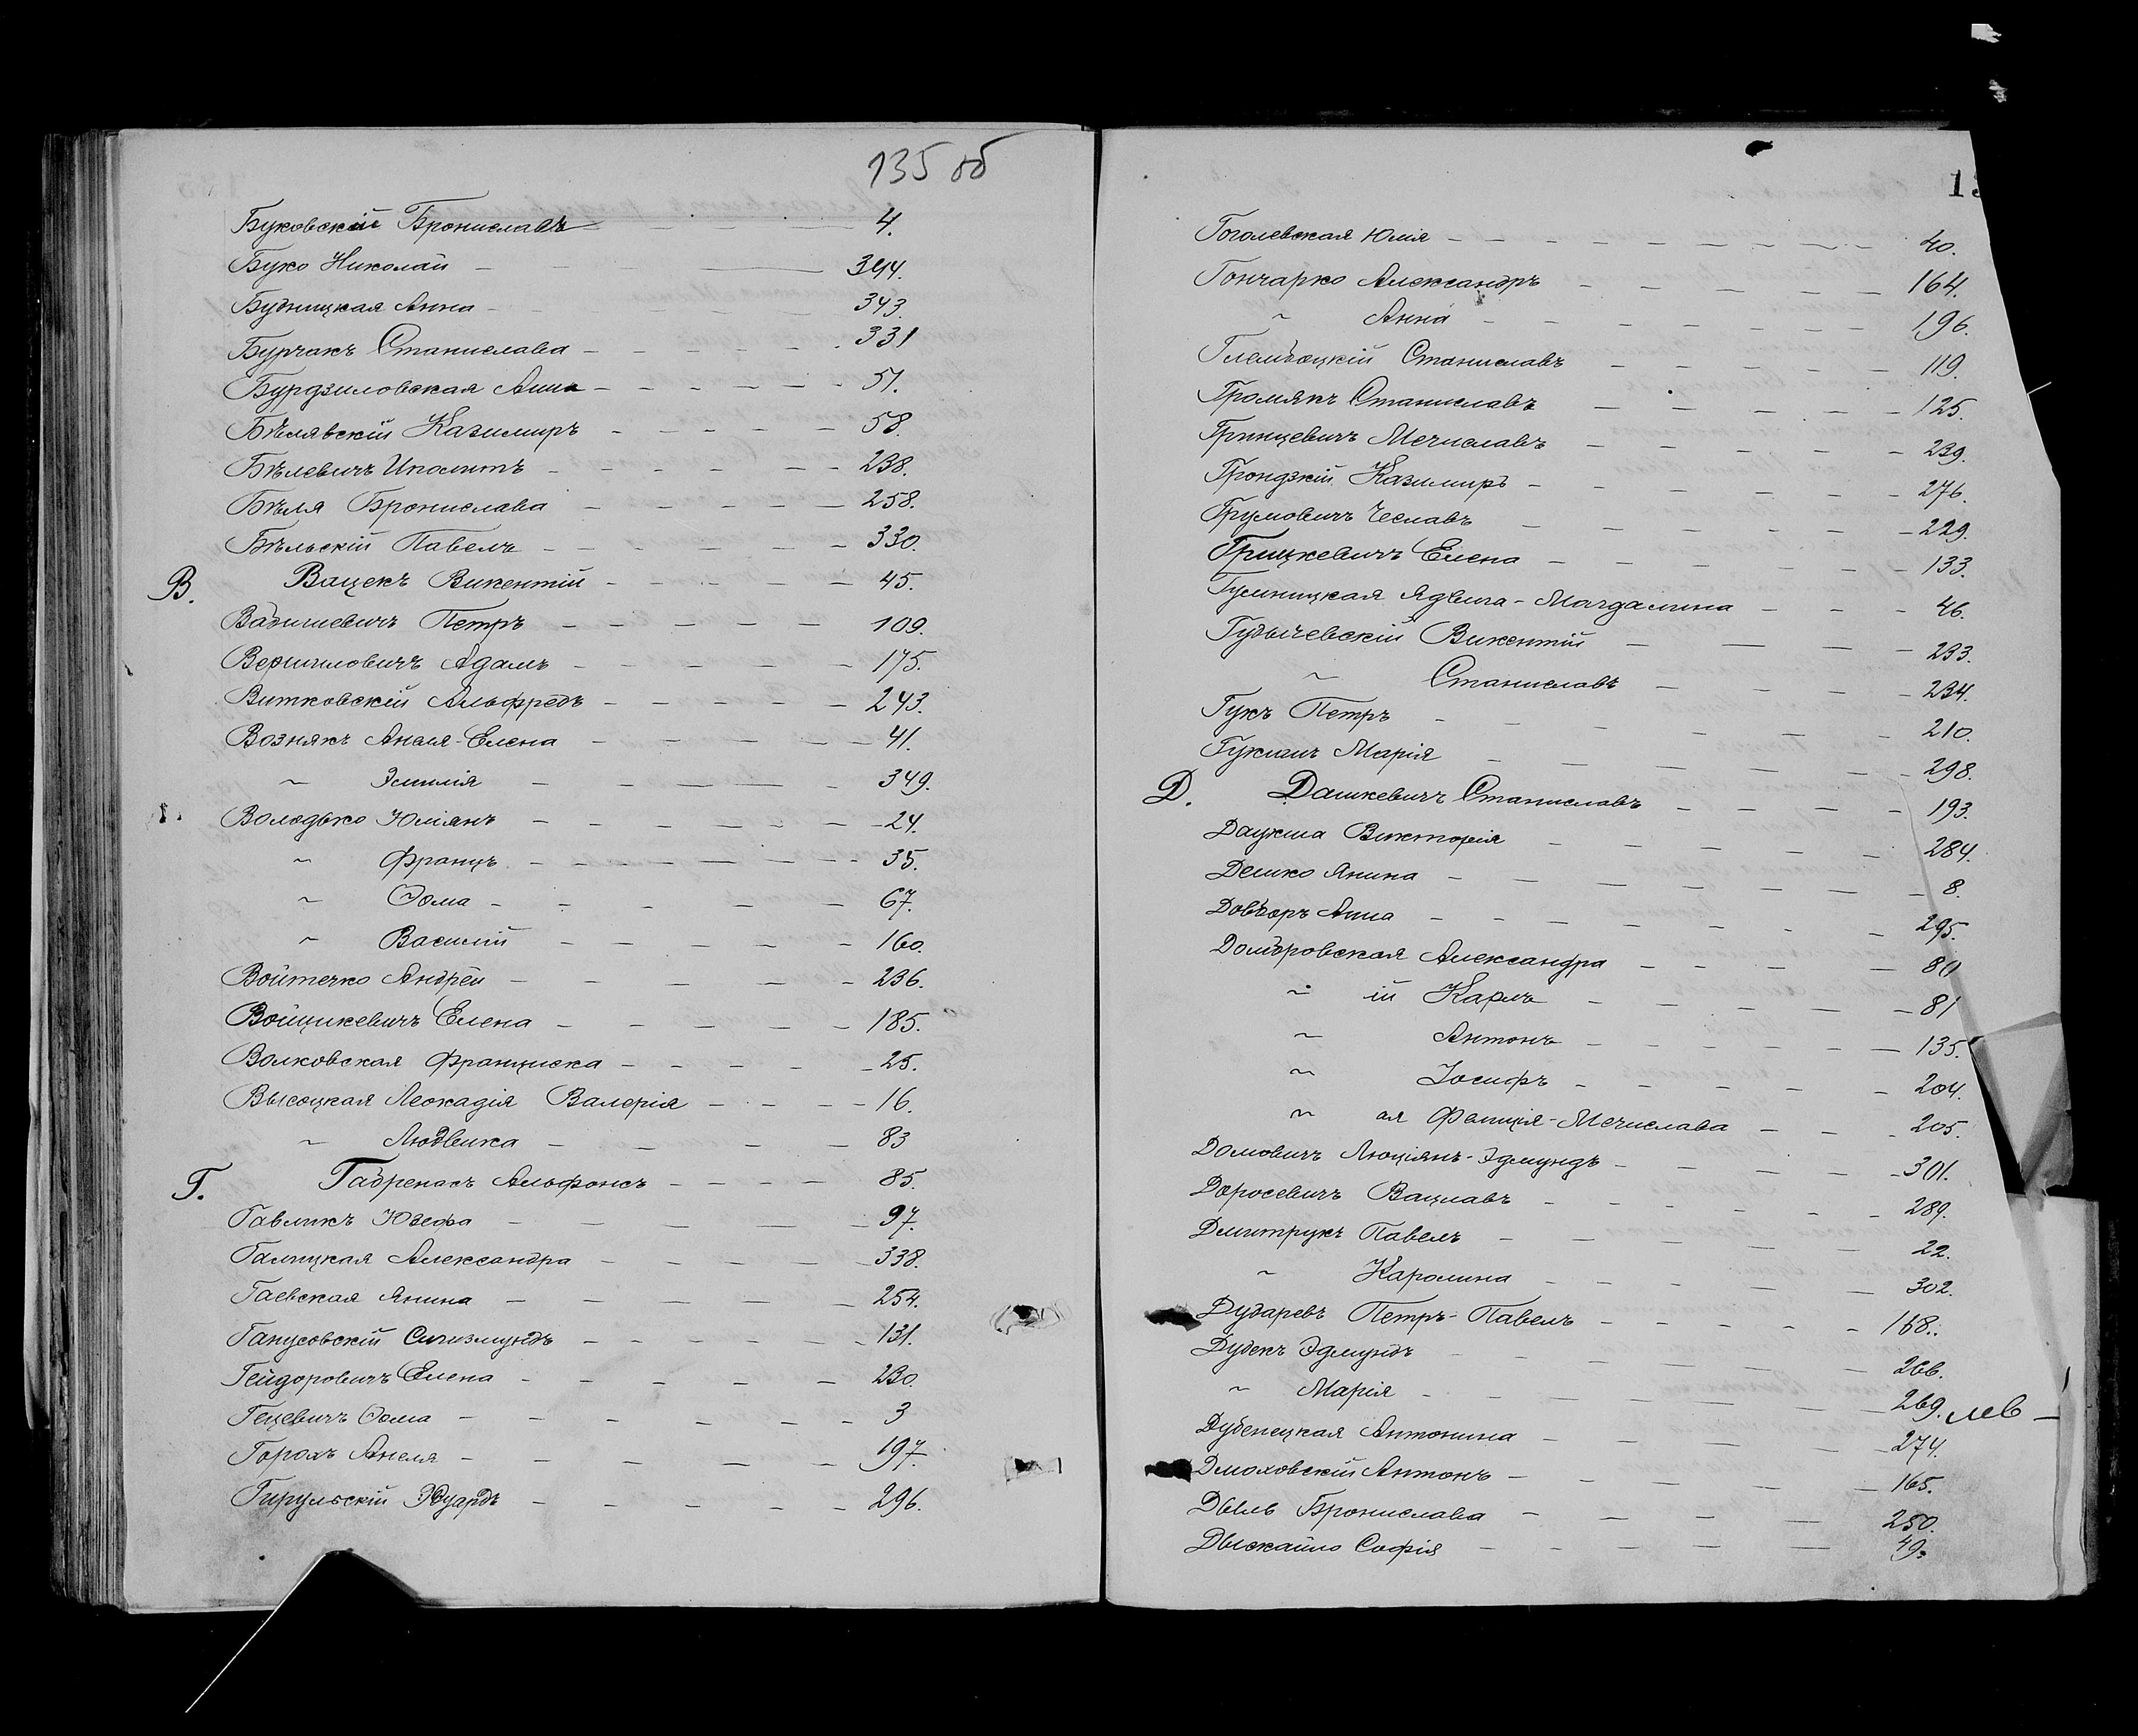 135 об
Буковскій Брониславъ 4.
Буко Николай — 344.
Будницкая Анна — 343.
Бурчакъ Станислава — 331
Бурдзиловская Анна — 51.
Бѣлявскій Казимиръ — 58.
Бѣлевичъ Иполитъ — 238.
Бѣля Бронислава — 258.
Бѣльскій Павелъ — 330.
В. Вацекъ Викентій — 45.
Петръ — 109.
Адамъ — 175.
Витковскій Альфредъ — 243.
Вознякъ Анеля-Елена — 41.
~ Эмилія — 349.
Володько Юліянъ — 24.
~ Францъ — 35.
~ Ѳома — 67.
~ Василій — 160.
Войтечко Андрей — 236.
Войцикевичъ Елена — 185.
Волковская Франциска — 25.
Высоцкая Леокадія Валерія — 16.
~ Людвика — 83
Г. Габренасъ Альфонсъ — 85.
Гавликъ Юзефа — 97.
Галицкая Александра — 338.
Гаевская Янина — 254.
Ганусовскій Сигизмундъ — 131.
Гейдоровичъ Елена — 230.
Гецевичъ Ѳома — 3
Горохъ Анеля — 197.
Гирульскій Эдуардъ — 296.
Гоголевская Юлія — 40.
Гончарко Александръ — 164.
~ Анна — 196.
Глембоцкій Станиславъ — 119.
Громякъ Станиславъ — 125.
Гринцевичъ Мечиславъ — 239.
Грондзкій Казимиръ — 276.
Грумовичъ Чеславъ — 229.
Грицкевичъ Елена — 133.
Гумницкая Ядвига-Магдалина — 46.
Гудычевскій Викентій — 233.
~ Станиславъ — 234.
Гукъ Петръ — 210.
Марія — 298.
Д. Дашкевичъ Станиславъ — 193.
Даукша Викторія — 284.
Демко Янина — 8.
Довборъ Анна — 295.
Домбровская Александра — 80
~ ій Карлъ — 81
~ Антонъ — 135.
~ Іосифъ — 204.
~ ая Фелиція-Мечислава — 205.
Домовичъ Люціянъ-Эдмундъ — 301.
Доросевичъ Вацлавъ — 289.
Дмитрукъ Павелъ — 22.
~ Каролина — 302.
Дударевъ Петръ-Павелъ — 168.
Дудекъ Эдмундъ — 266.
~ Марія — 269. лев —
Дубенецкая Антонина — 274.
Дмоховскій Антонъ — 165.
Дыль Бронислава — 250.
Дыскайло Софія — 49.